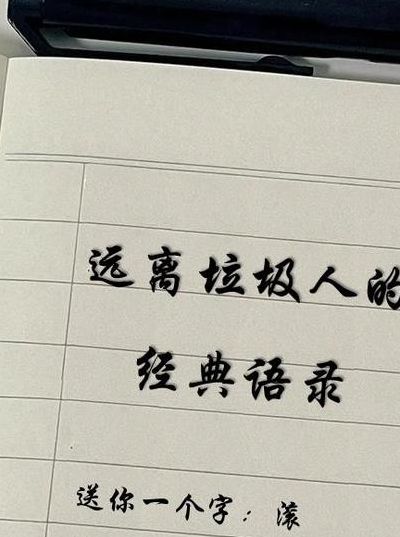 远离垃圾人的
经典语录
送你一个字：滚